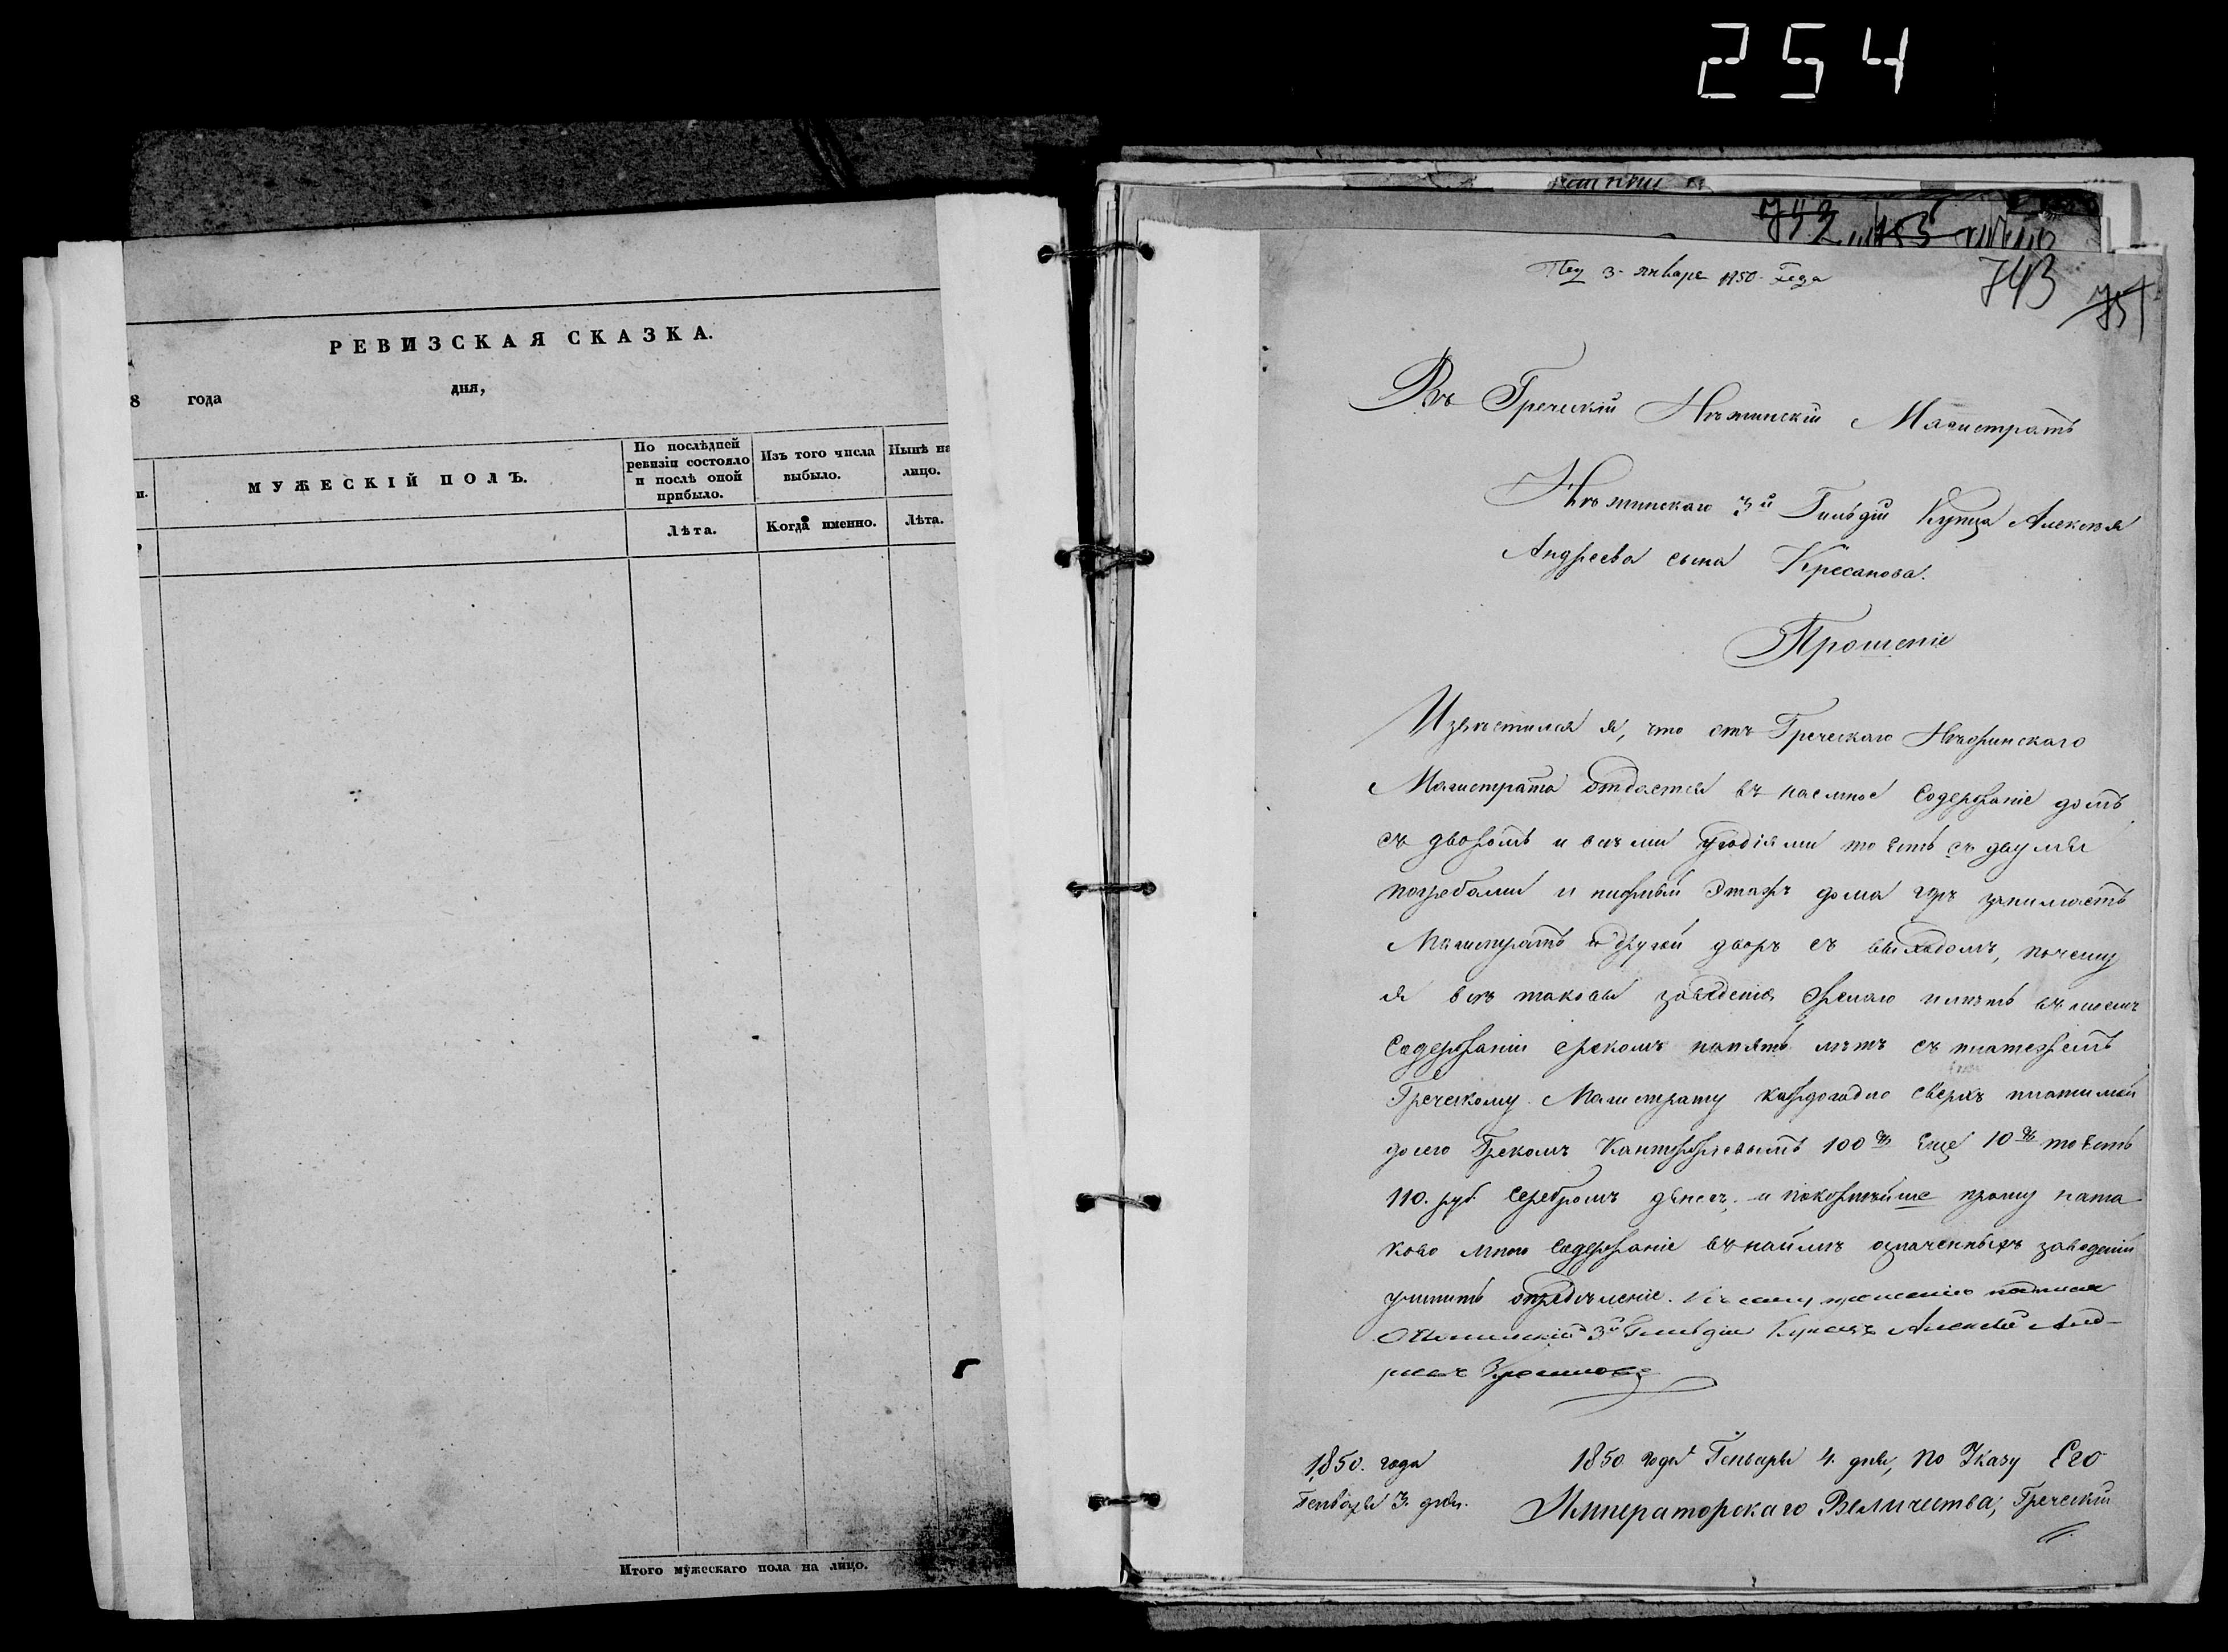 254
РЕВИЗСКАЯ СКАЗКА.
8 года дня,
МУЖЕСКІЙ ПОЛЪ.
По послѣдней
ревизіи состояло
и послѣ оной
прибыло.
Изъ того числа
выбыло.
Нынѣ на
лицо.
Лѣта.
Когда именно.
Лѣта.
Итого мужескаго пола на лицо.
743
751
3 января 1850 года
Въ Греческій Нѣжинскій Магистратъ
Нѣжинскаго 3й Гильдіи Купца Алексѣя
Андреева сына
Прошеніе
Извѣстился я, что отъ Греческаго Нѣжинскаго
Магистрата отдается въ наемное содержаніе домъ
съ дворомъ и всѣми угодіями то есть съ двумя
погребами и нижный этажъ дома гдѣ занимаетъ
Магистратъ и другой дворъ съ выходомъ, почему
я всѣ таковы заведенія желаю имѣть въ
содержаніи срокомъ на пять лѣтъ съ платежемъ
Греческому Магистрату каждогодно сверхъ платимой
до сего Грекомъ 100 еще 10 то есть
110. руб серебромъ денегъ, и покорнѣйше прошу на та
ково мною содержаніе въ наймъ означенныхъ заведеній
учинить опредѣленіе. Къ сему прошенію
3й Гильдіи Купецъ Алексѣй Анд-
1850. года
Генваря 3. дня.
1850 года Генваря 4. дня, по Указу Его
Императорскаго Величества, Греческій